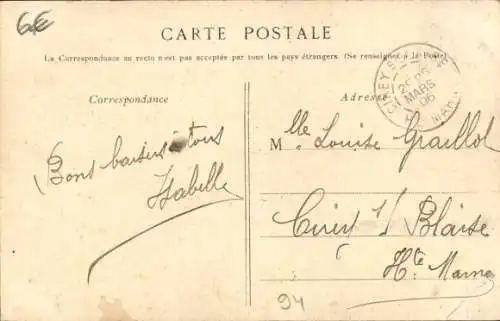 6€
CARTE POSTALE
La Correspondance au recto n'est pas acceptée par tous les pays étrangers. (Se renseigner à la Poste)
Correspondance
Adresse
CIREY S
MARS
06
Mlle Louise Graillot
Bons baisers à tous
Isabelle
Cirey s/ Blaise
Hte Marne
94